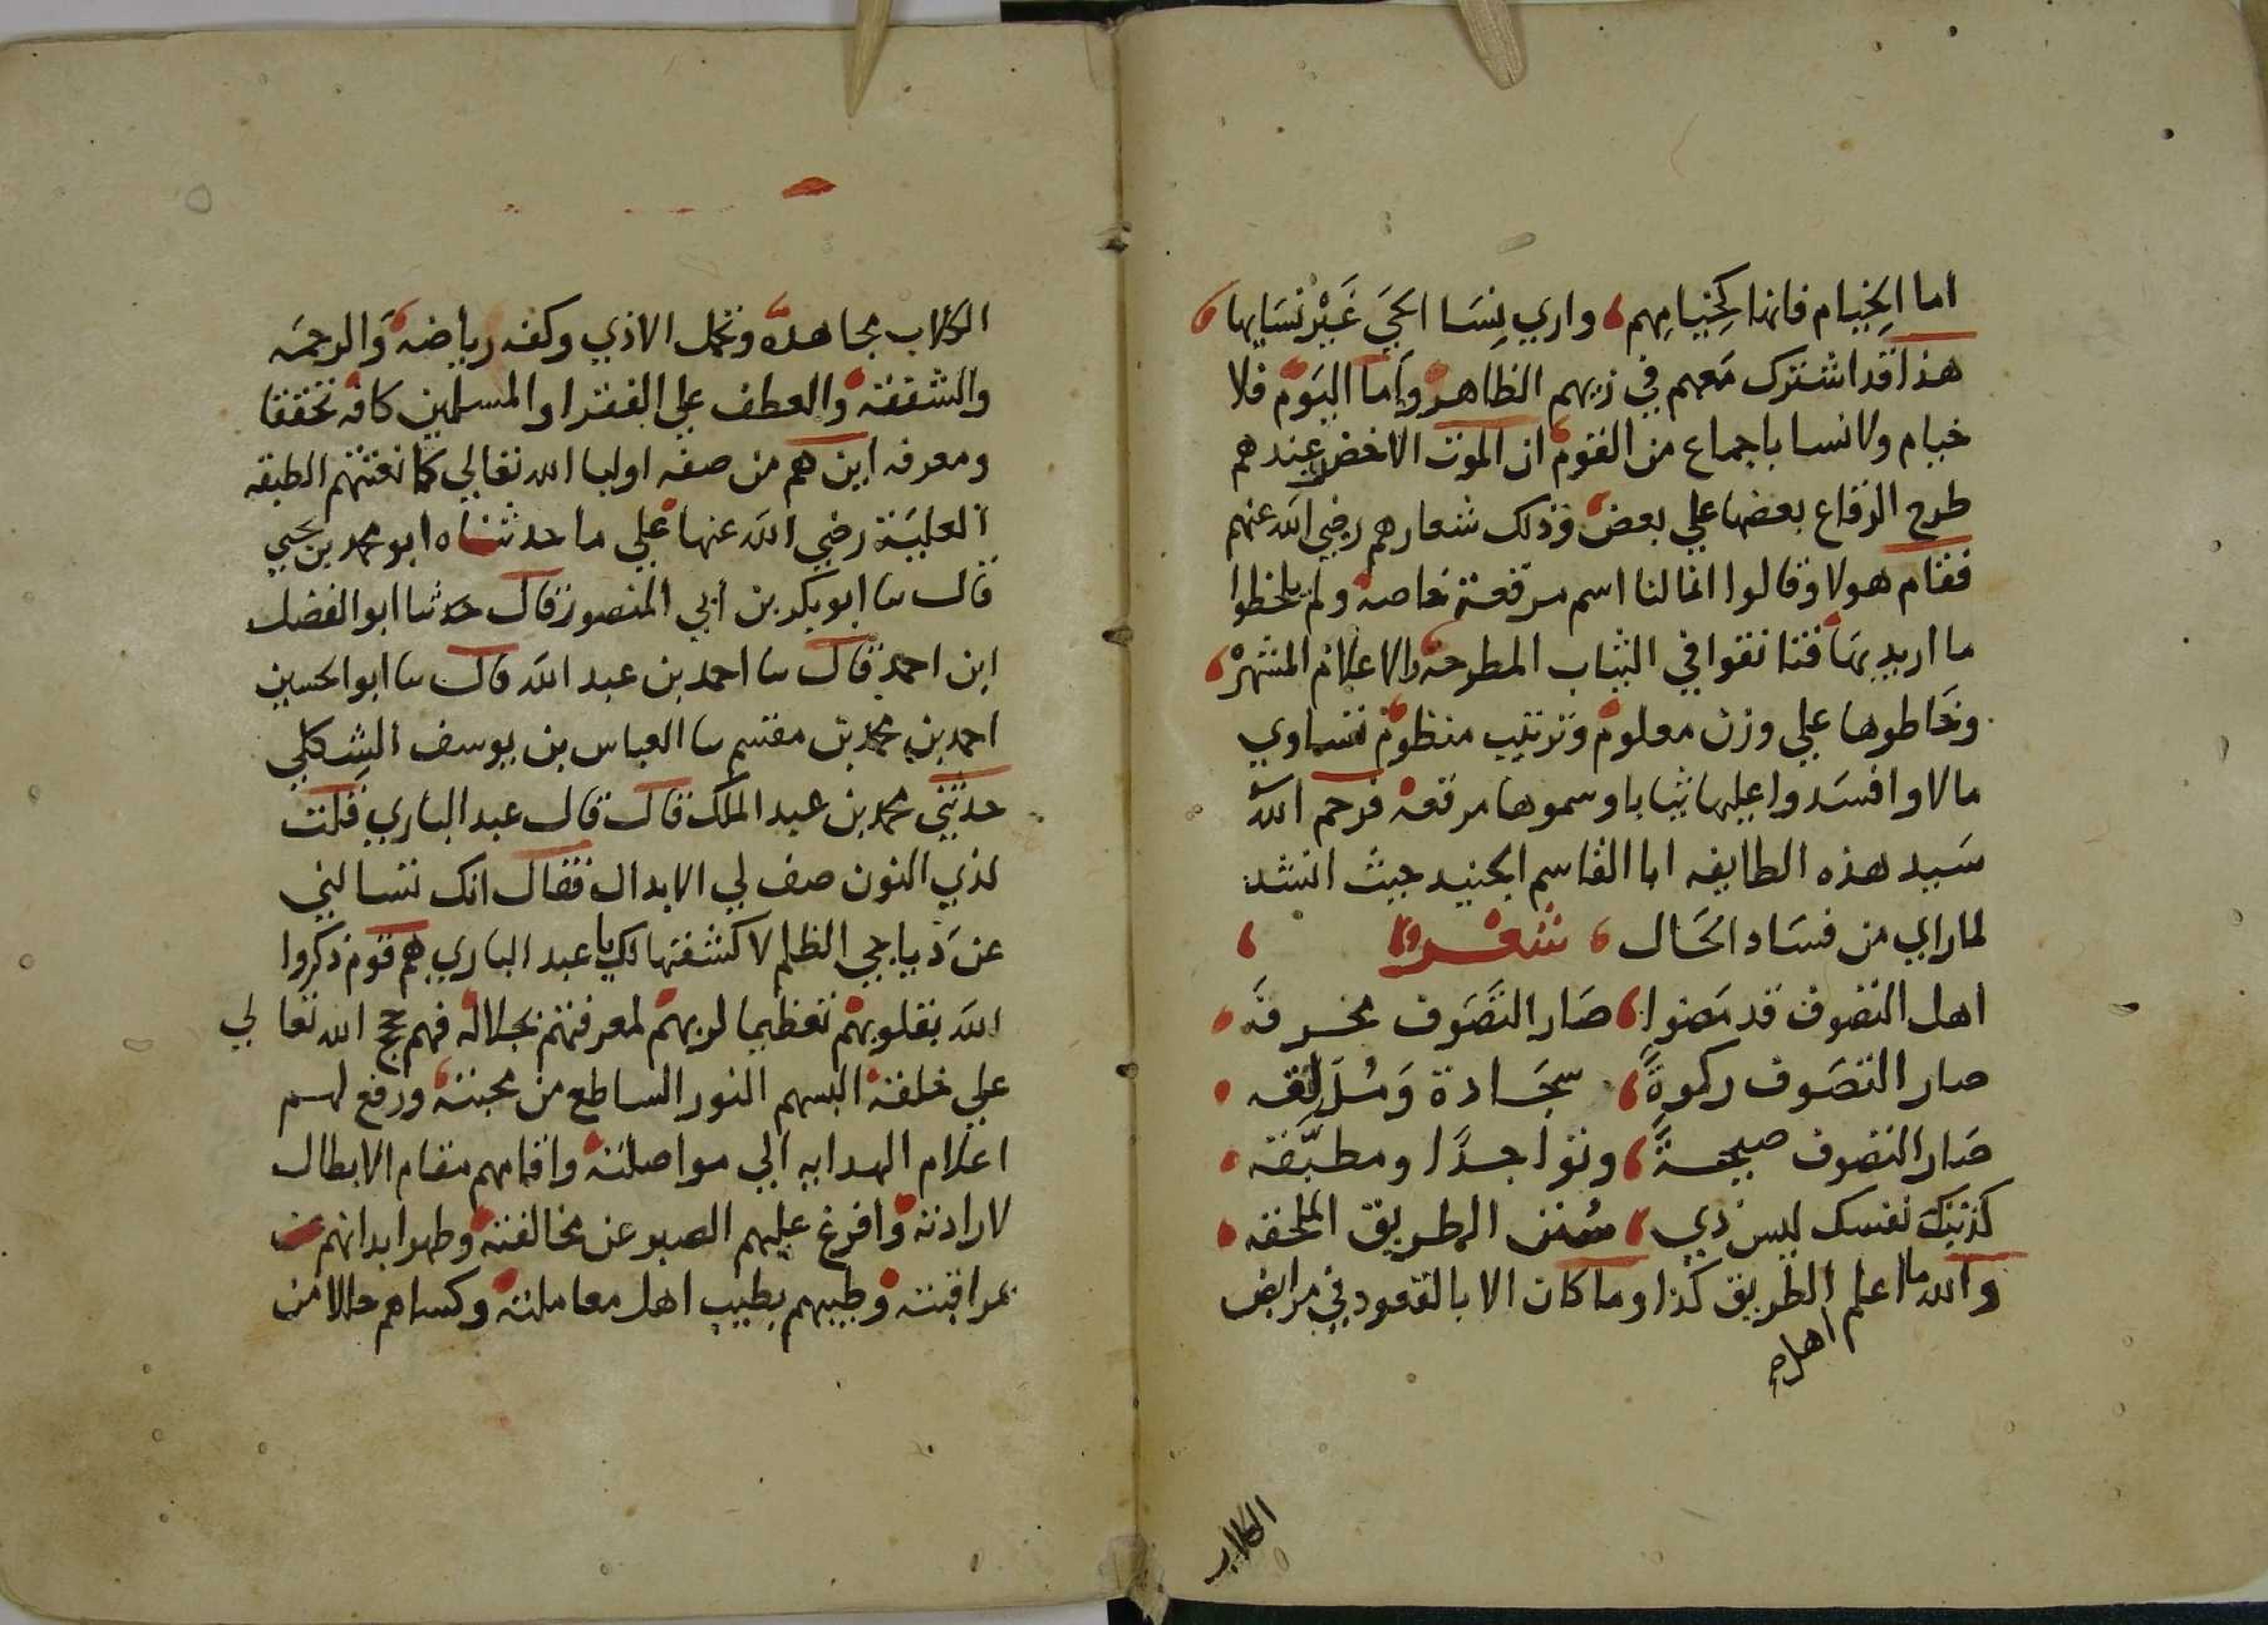 اما الخِيام فانها كخِيامِهم، واري نِسَا الحَيَ غَيْرْ نسَايها،
هذا قد اشترك مَعهم في زيهم الظاهر وأما اليَوم فلا
خيام ولا نسا باجماع من القوم ان الموت الاخضر عندهم
طرح الرقاع بعضها علي بعض وذلك شعارهم رضي الله عنهم
فقام هولا وقالوا انما لنا اسم مرقعة خاصه ولم يلحظوا
ما اريد بهَا فتانقوا في الثياب المطروحه والاعلام المشهرْ،
وخَاطوها علي وزن معلوم وترتيب منظوم تساوي
مالا وافسَدوا عليها ثيابا وسموها مرقعه فرحم الله
سَيد هذه الطايفه ابا القاسم الجنيد حيث انشد
لما راي من فسَاد الحَال، شعرا،
اهل التصوف قد مَضوا، صَار التَصَوف مخرقَه
صار التصَوف ركوةً، سجَادة وَمُدَلقه
صَار التصوف صيحةً، وتواجدًا ومطبَّقه
كذبتك نفسك ليس ذي، سُنن الطريق الملحقه
والله ما اعلم الطريق كذا وما كان الا بالقعود في مرابض
اهل صح
الكلاب
الكلاب مجاهدة وتحمل الاذي وكفه رياضه وَالرحمَه
والشفقه والعطف علي الفقرا والمسلمين كافه تحققا
ومعرفه اين هم من صفه اوليا الله تعالي كما نعتتهم الطبقه
العليَة رضي الله عنها علي ما حدثناه ابو محمد بن يحيي
قال سا ابو بكر بن أبي المنصور قال حدثنا ابو الفضل
ابن احمد قال سا احمد بن عبد الله قال سا ابو الحسين
احمد بن محمد بن مقسم سا العباس بن يوسف الشِكلي
حدثني محمد بن عبد الملك قال قال عبد الباري قلت
لذي النون صف لي الابدال فقال انك تسالني
عن دَياجي الظلم لاكشفتها لك يا عبد الباري هم قوم ذكروا
الله بقلوبهم تعظيما لربهم لمعرفتهم بجلاله فهم حجج الله تعالي
علي خلقه البسهم النور الساطع من محبته ورفع لهم
اعلام الهدايه الي مواصلته واقامهم مقام الابطال
لارادته وافرغ عليهم الصبر عن مخالفته وطهر ابدانهم
بمراقبته وطيبهم بطيب اهل معاملته وكساهم حللا من